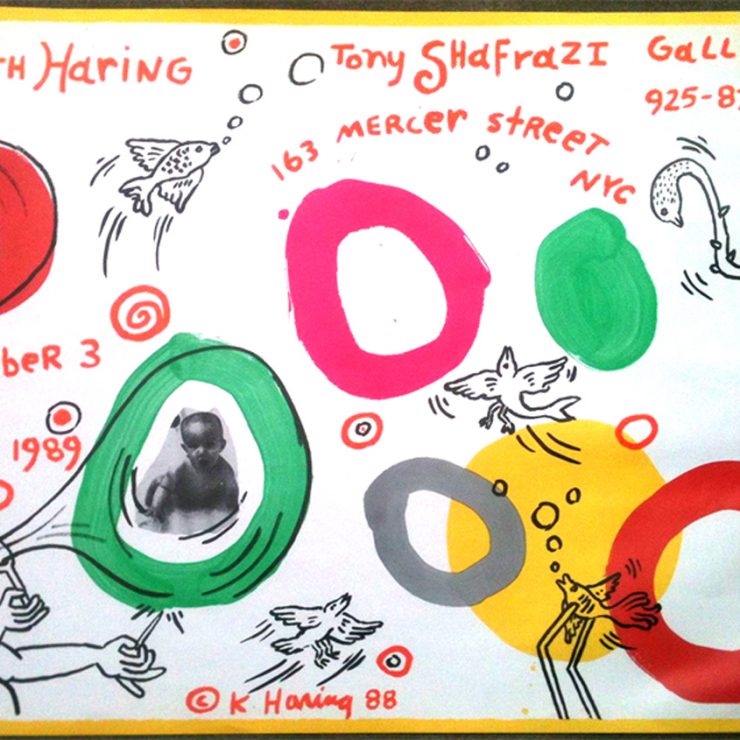 TH HARING
TONY SHAFRAZI GALL
163 MERCER STREET NYC
925-87
BER 3
1989
© K Haring 88